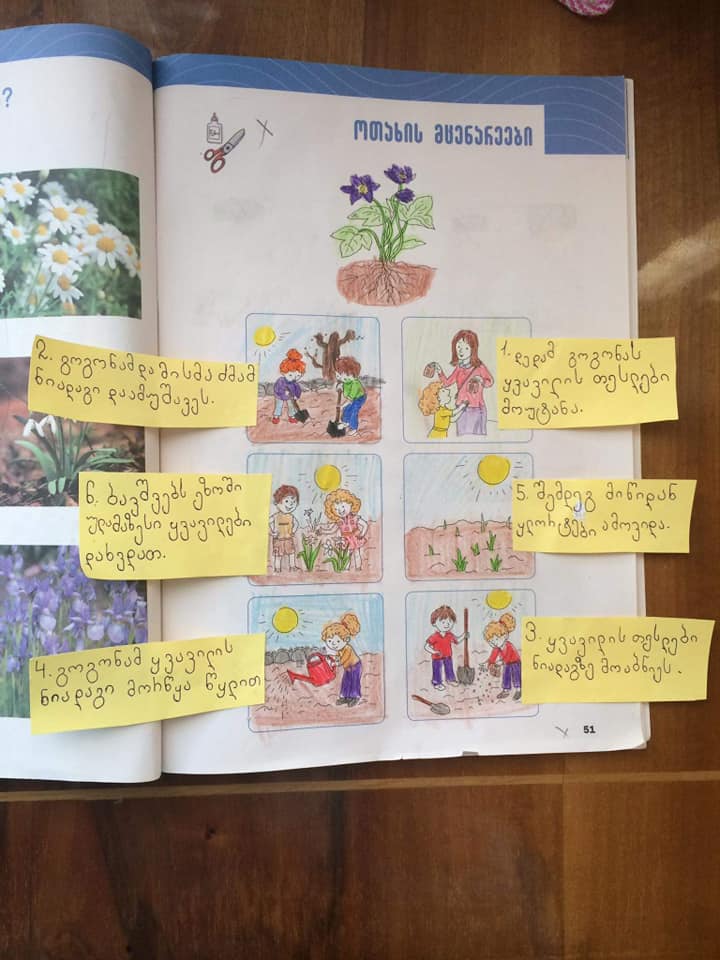 ?
ოთახის მცენარეები
2. გოგონამ და მისმა ძმამ
ნიადაგი დაამუშავეს.
1. დედამ გოგონას
ყვავილის თესლები
მოუტანა.
6. ბავშვებს ეზოში
ულამაზესი ყვავილები
დახვდათ.
5. შემდეგ მიწიდან
ყლორტები ამოვიდა.
4. გოგონამ ყვავილის
ნიადაგი მორწყა წყლით
3. ყვავილის თესლები
ნიადაგზე მოაბნიეს.
51